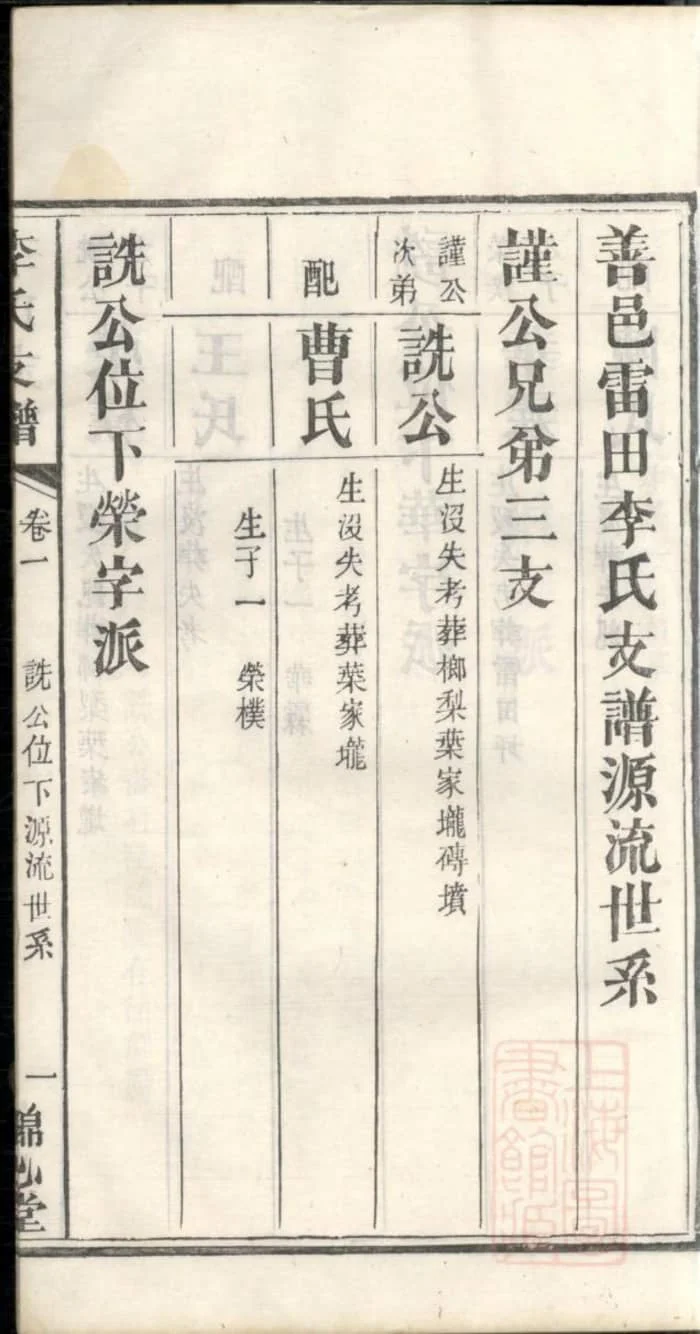 善邑雷田李氏支譜源流世系
謹公兄弟三支
謹公
次弟
詵公
生沒失考葬榔梨葉家壠磚墳
配
曹氏
生沒失考葬葉家壠
生子一 榮樸
詵公位下榮字派
李氏支譜
卷一
詵公位下源流世系
一
堂
上海圖書館藏